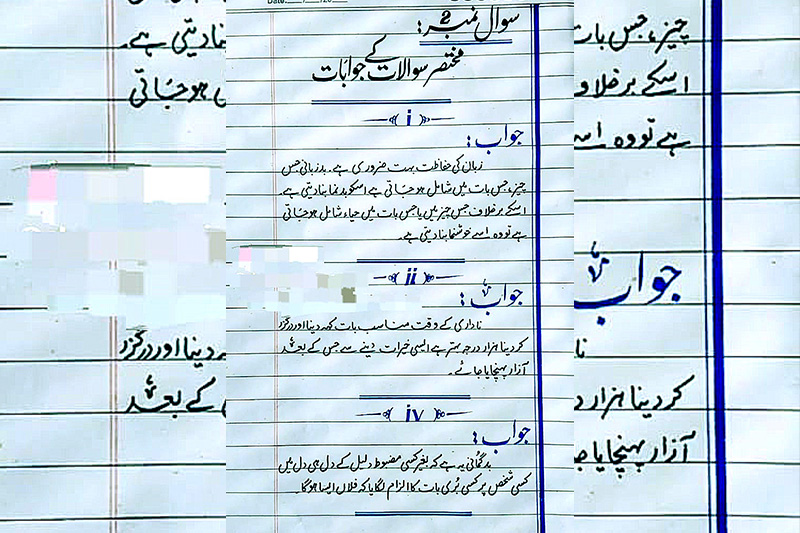 Date:
سوال نمبر 2:
مختصر سوالات کے جوابات
i
جواب:
زبان کی حفاظت بہت ضروری ہے۔ بدزبانی جس
چیز، جس بات میں شامل ہو جاتی ہے اسکو بدنما بنا دیتی ہے۔
اسکے برخلاف جس چیز میں یا جس بات میں حیاء شامل ہو جاتی
ہے تو وہ اسے خوشنما بنا دیتی ہے۔
ii
جواب:
ناداری کے وقت مناسب بات کہہ دینا اور درگزر
کر دینا ہزار درجہ بہتر ہے ایسی خیرات دینے سے جس کے بعد
آزار پہنچایا جائے۔
iv
جواب:
بدگمانی یہ ہے کہ بغیر کسی مضبوط دلیل کے دل ہی دل میں
کسی شخص پر کسی بُری بات کا الزام لگایا کہ فلاں ایسا ہوگا۔
چیز، جس بات
اسکے برخلاف
ہے تو وہ اسے
جواب
نا
کر دینا ہزار د
آزار پہنچایا جا
نا دیتی ہے۔
ہو جاتی
ہہ دینا اور درگزر
کے بعد